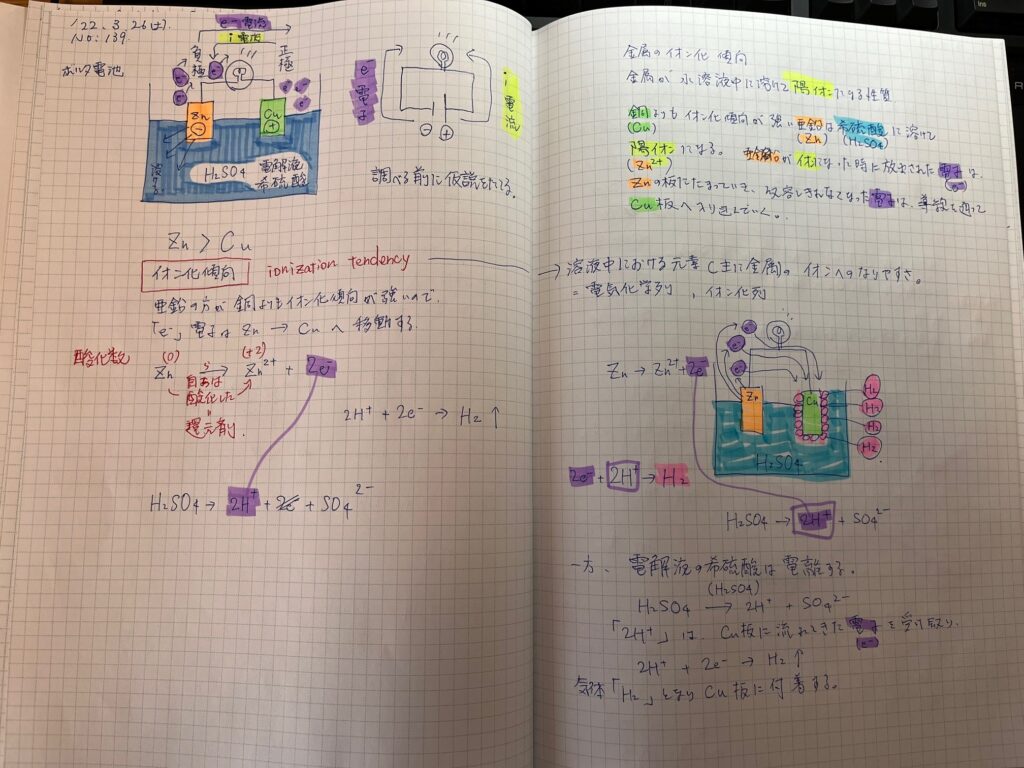 '22.3.26(土).
No.139.
ボルタ電池
e⁻ 電流
i 電流
負極
正極
e⁻ e⁻ e⁻ e⁻ e⁻
Zn
⊖
Cu
⊕
溶ける
H₂SO₄ 電解液
希硫酸
e⁻ 電子
i 電流
⊖ ⊕
調べる前に仮説をたてる。
Zn > Cu
イオン化傾向 ionization tendency
亜鉛の方が銅よりもイオン化傾向が強いので、
「e⁻」電子はZn → Cuへ移動する。
酸化数
(0) (+2)
Zn → Zn²⁺ + 2e⁻
自分は
酸化した
還元剤.
2H⁺ + 2e⁻ → H₂↑
H₂SO₄ → 2H⁺ + 2e⁻ + SO₄²⁻
金属のイオン化傾向
金属が水溶液中に溶けて陽イオンになる性質
銅よりもイオン化傾向が強い亜鉛は希硫酸に溶けて
(Cu) (Zn) (H₂SO₄)
陽イオンになる。亜鉛がイオンになった時に放出された電子は、
(Zn²⁺) e⁻
Znの板にたまっていき、収容しきれなくなった電子は、導線を通って
Cu板へ入り込んでいく。
→ 溶液中における元素(主に金属のイオンへのなりやすさ。
= 電気化学列, イオン化列
Zn → Zn²⁺ + 2e⁻
e⁻ e⁻ e⁻
Zn
Cu
H₂
H₂
H₂
H₂
H₂SO₄
2e⁻ + 2H⁺ → H₂
H₂SO₄ → 2H⁺ + SO₄²⁻
一方、電解液の希硫酸は電離する。
(H₂SO₄)
H₂SO₄ → 2H⁺ + SO₄²⁻
「2H⁺」は、Cu板に流れてきた電子を受け取り、
e⁻
2H⁺ + 2e⁻ → H₂↑
気体「H₂」となりCu板に付着する。